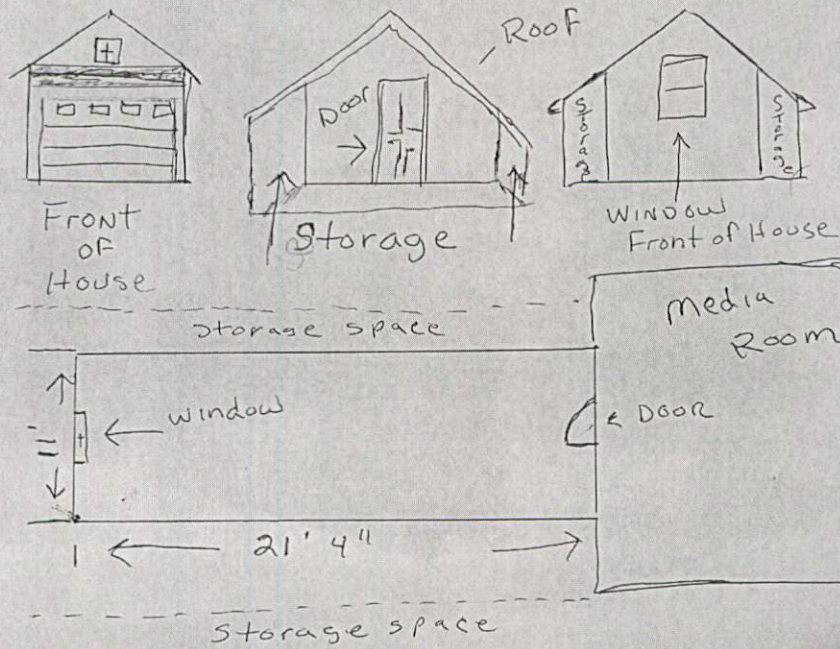 Front
of
House
Door
Roof
Storage
Storage
Storage
Window
Front of House
Storage space
Media
Room
Window
Door
11
21' 4"
Storage space